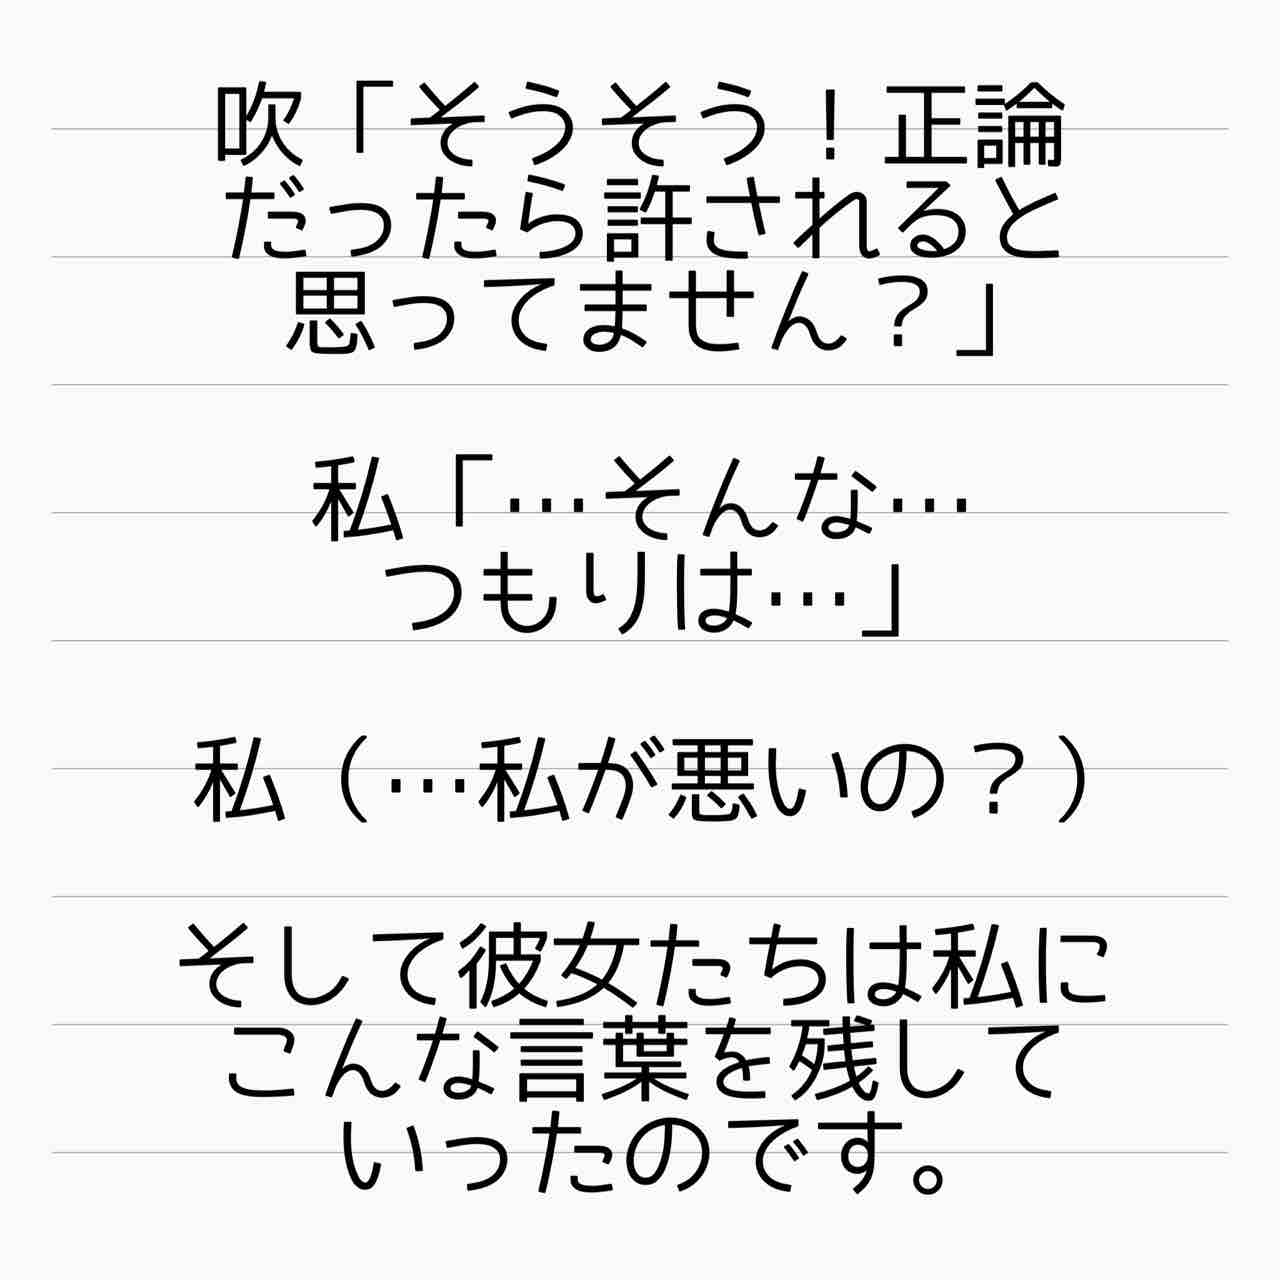 吹「そうそう！正論
だったら許されると
思ってません？」
私「…そんな…
つもりは…」
私（…私が悪いの？）
そして彼女たちは私に
こんな言葉を残して
いったのです。